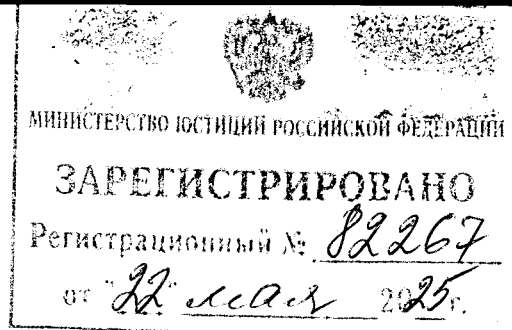 МИНИСТЕРСТВО ЮСТИЦИИ РОССИЙСКОЙ ФЕДЕРАЦИИ
ЗАРЕГИСТРИРОВАНО
Регистрационный № 82267
от "22" мая 2025г.